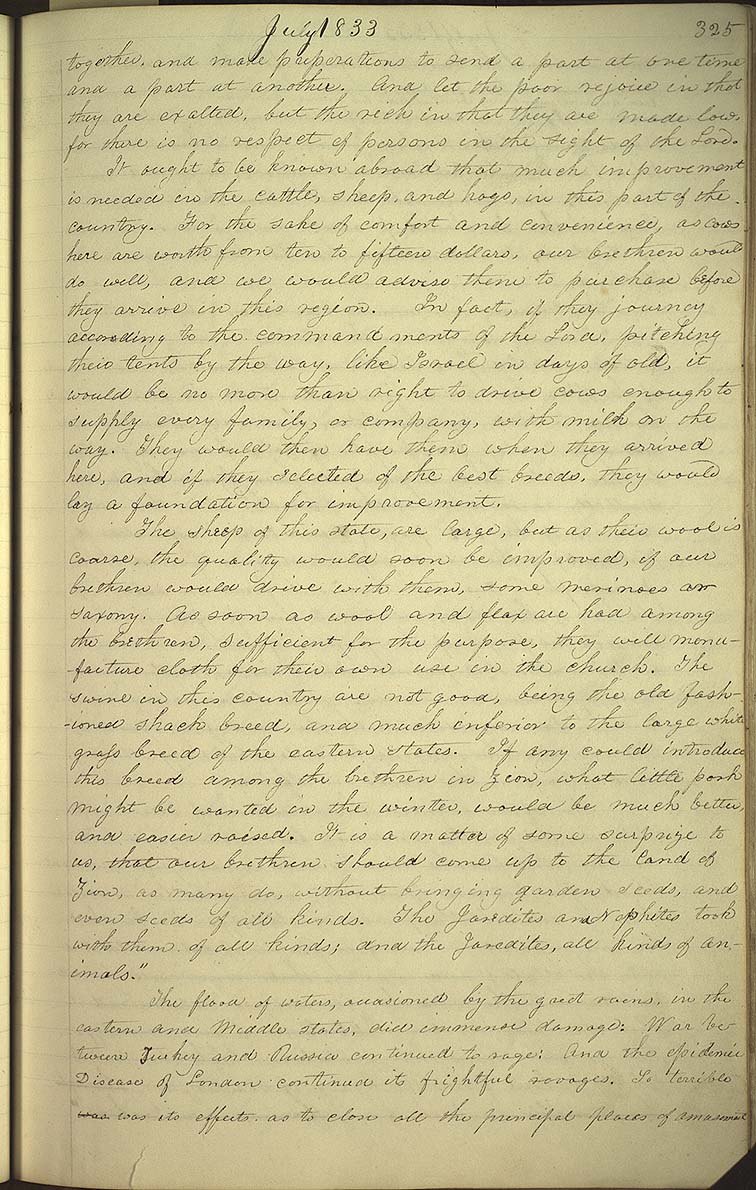 July 1833
325
together, and make preparations to send a part at one time
and a part at another. And let the poor rejoice in that
they are exalted, but the rich in that they are made low,
for there is no respect of persons in the sight of the Lord.
It ought to be known abroad that much improvement
is needed in the cattle, sheep, and hogs, in this part of the
country. For the sake of comfort and convenience, as cows
here are worth from ten to fifteen dollars, our brethren would
do well, and we would advise them to purchase before
they arrive in this region. In fact, if they journey
according to the commandments of the Lord, pitching
their tents by the way, like Israel in days of old, it
would be no more than right to drive cows enough to
supply every family, or company, with milk on the
way. They would then have them when they arrived
here, and if they selected of the best breeds, they would
lay a foundation for improvement.
The sheep of this state, are large, but as their wool is
coarse, the quality would soon be improved, if our
brethren would drive with them, some merinoes or
saxony. As soon as wool and flax are had among
the brethren, sufficient for the purpose, they will manu-
-facture cloth for their own use in the church. The
swine in this country are not good, being the old fash-
-ioned shack breed, and much inferior to the large white
grass breed of the eastern states. If any could introduce
this breed among the brethren in Zion, what little pork
might be wanted in the winter, would be much better,
and easier raised. It is a matter of some surprize to
us, that our brethren should come up to the land of
Zion, as many do, without bringing garden seeds, and
even seeds of all kinds. The Jaredites and Nephites took
with them of all kinds; and the Jaredites, all kinds of an-
imals."
The flood of waters, occasioned by the great rains, in the
eastern and Middle states, did immense damage: War be-
tween Turkey and Russia continued to rage: And the epidemic
Disease of London continued it frightful ravages. So terrible
was was its effects as to close all the principal places of amusement